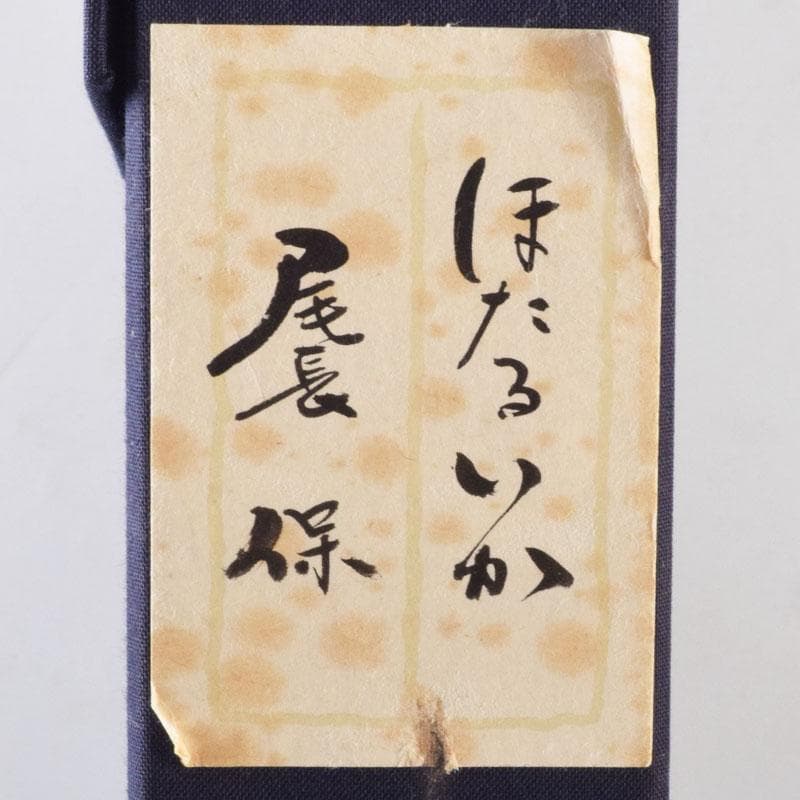 ほたるいか
尾長保